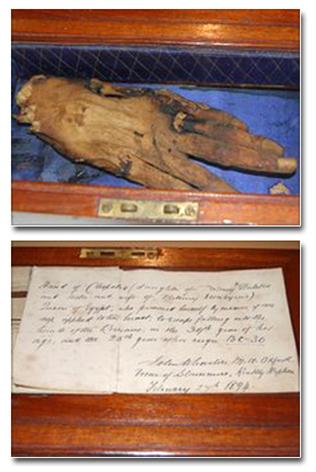 Hand of Cleopatra (daughter of Ptolemy Auletes
and sister and wife of Ptolemy Dionysius)
Queen of Egypt, who poisoned herself by means of an
asp applied to her breast, to escape falling into the
hands of the Romans, in the 39th year of her
age, and the 20th year of her reign BC-30
John M. A. Oxford
Vicar of
February 27th 1894.